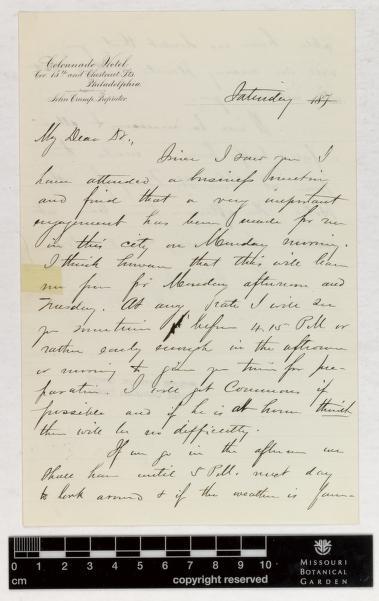 Colonnade Hotel
Cor. 15th and Chestnut Sts.
Philadelphia
John Crump, Proprietor.
Saturday 187
My Dear Dr.,
Since I saw you I
have attended a business meeting
and find that a very important
engagement has been made for me
in this city on Monday morning.
I think however that this will leave
me free for Monday afternoon and
Tuesday. At any rate I will see
you sometime before 4.15 P.M. or
rather early enough in the afternoon
or morning to give you time for pre-
paration. I will get Commons if
possible and if he is at home think
there will be no difficulty.
If we go in the afternoon we
shall have until 5 P.M. next day
to look around & if the weather is favor-
0 1 2 3 4 5 6 7 8 9 10
cm
copyright reserved
MISSOURI
BOTANICAL
GARDEN